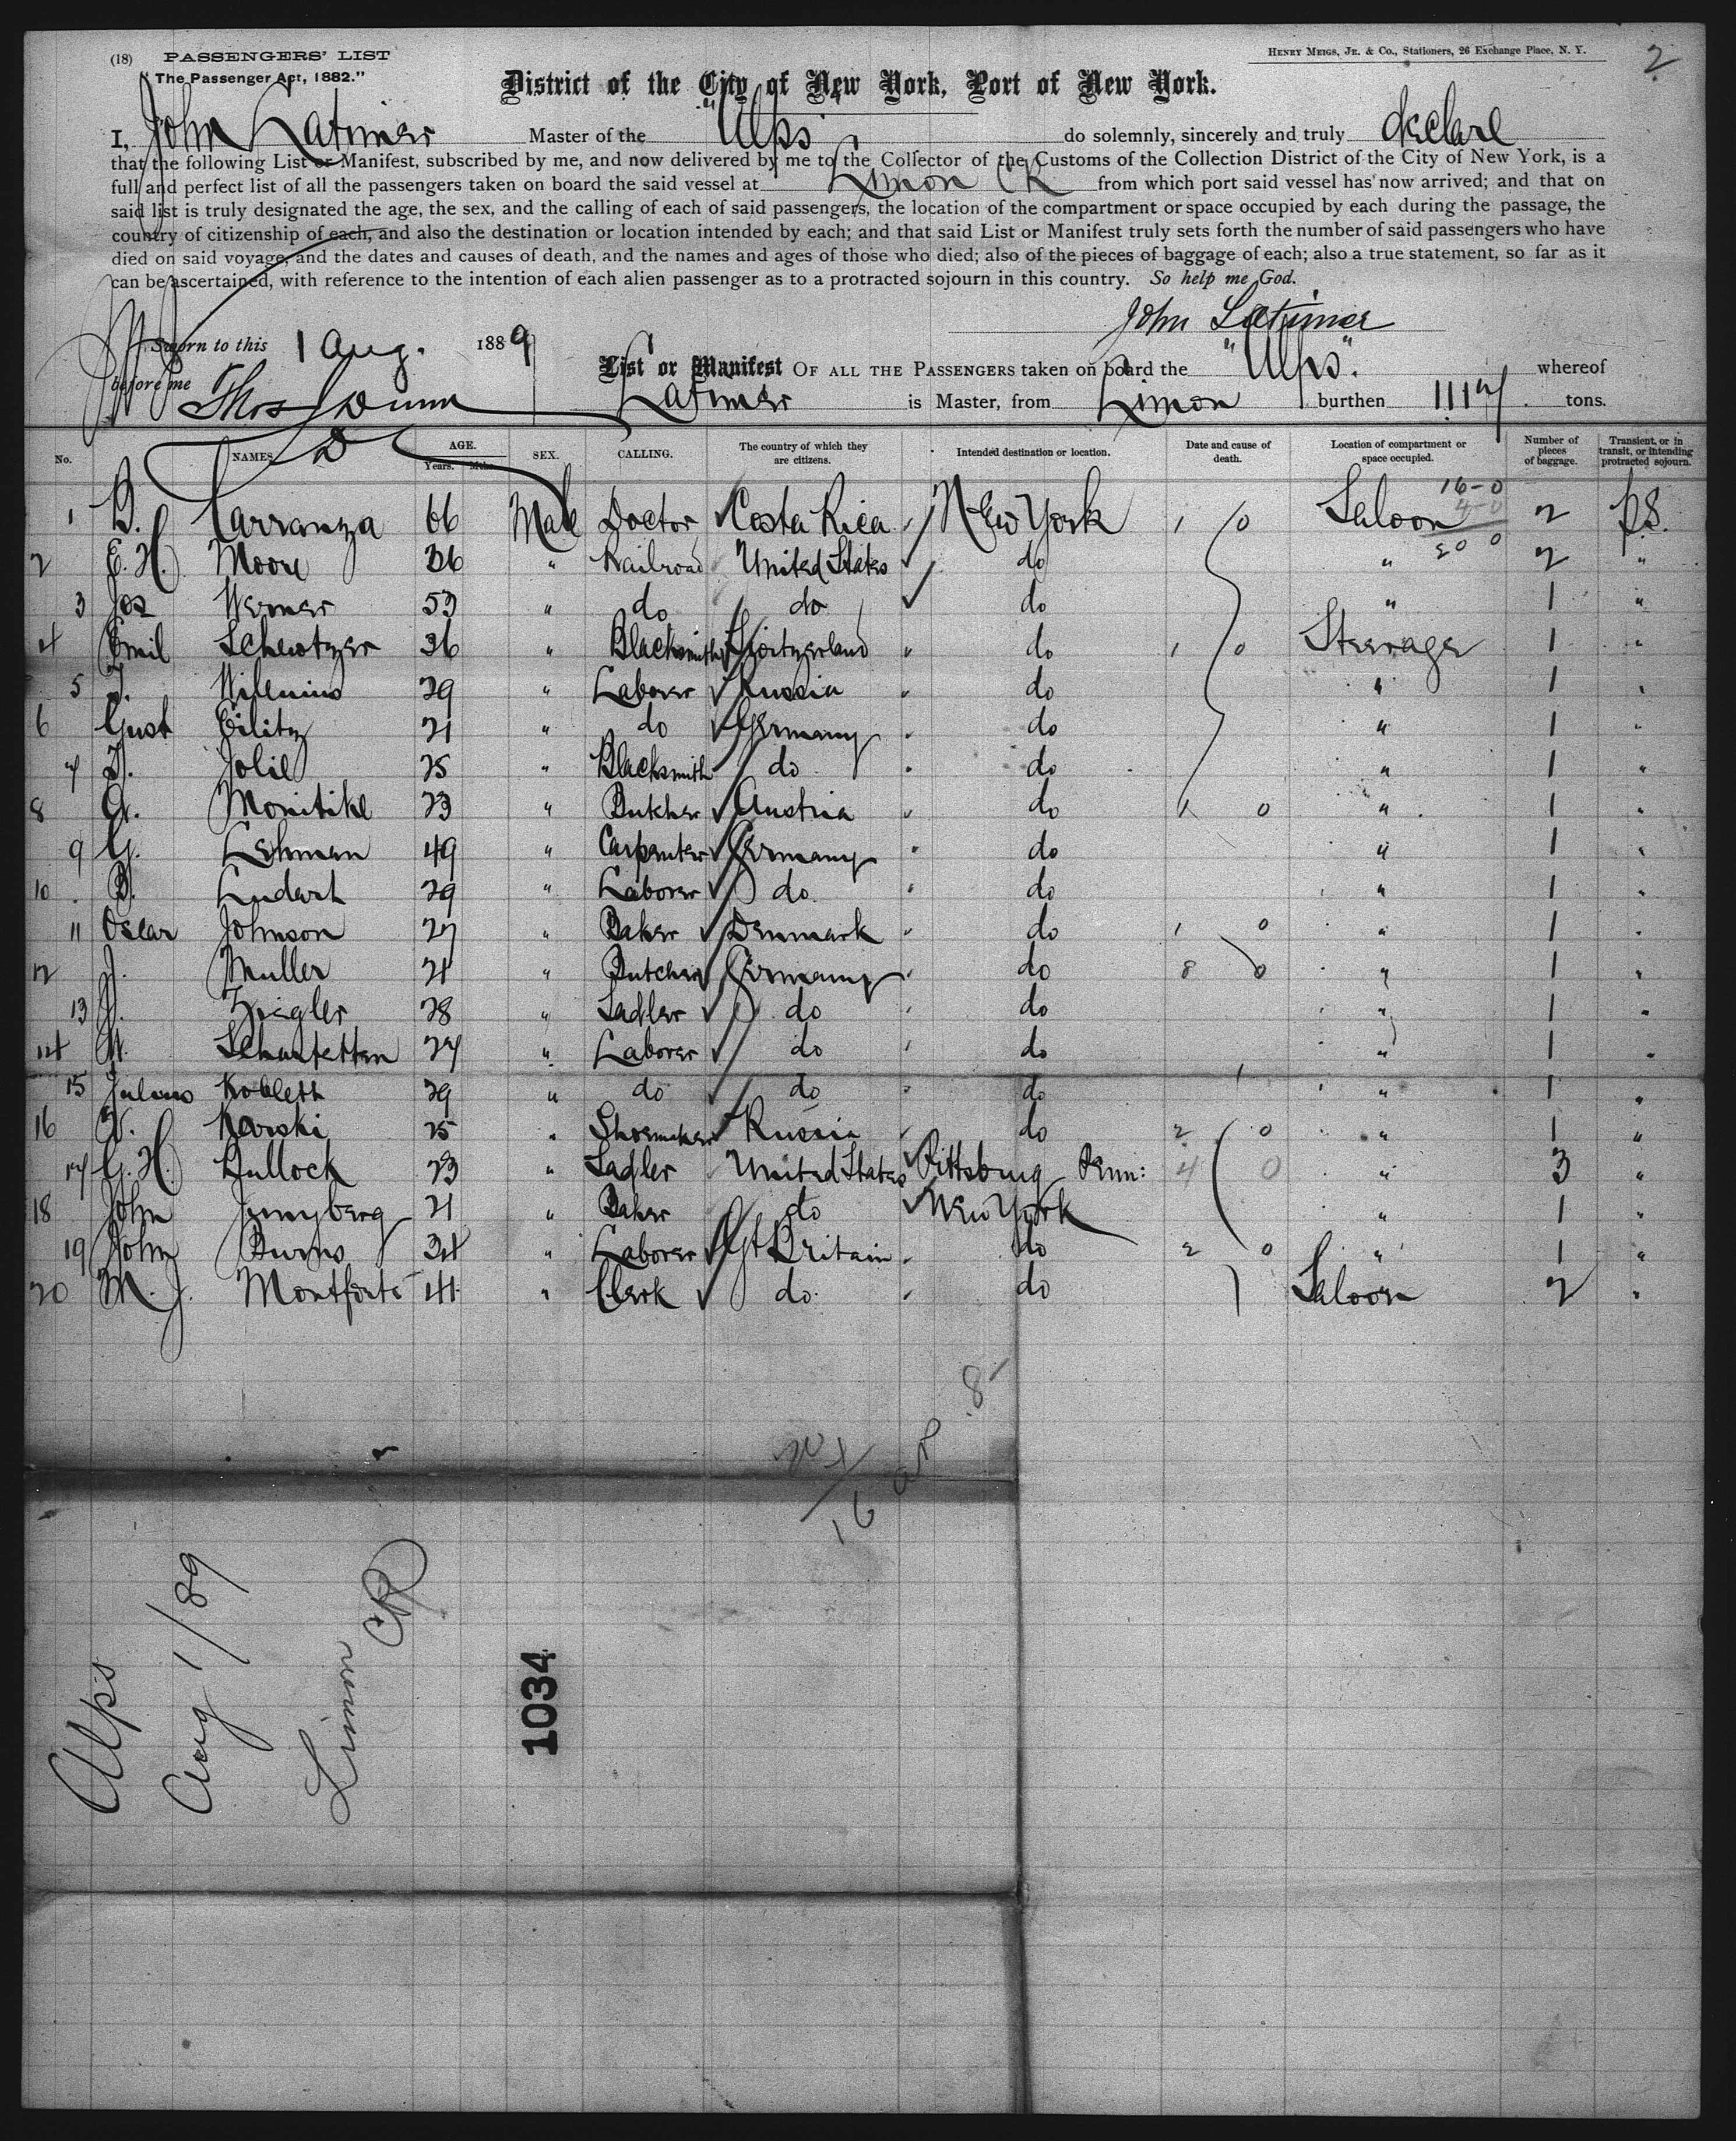 (18) PASSENGERS' LIST
HENRY MEIGS, JR. & CO., Stationers, 26 Exchange Place, N. Y.
2
"The Passenger Act, 1882."
District of the City of New York, Port of New York.
I, John Latimer Master of the "Alps" do solemnly, sincerely and truly declare
that the following List or Manifest, subscribed by me, and now delivered by me to the Collector of the Customs of the Collection District of the City of New York, is a
full and perfect list of all the passengers taken on board the said vessel at Limon CR from which port said vessel has now arrived; and that on
said list is truly designated the age, the sex, and the calling of each of said passengers, the location of the compartment or space occupied by each during the passage, the
country of citizenship of each, and also the destination or location intended by each; and that said List or Manifest truly sets forth the number of said passengers who have
died on said voyage, and the dates and causes of death, and the names and ages of those who died; also of the pieces of baggage of each; also a true statement, so far as it
can be ascertained, with reference to the intention of each alien passenger as to a protracted sojourn in this country. So help me God.
John Latimer
Sworn to this 1 Aug. 1889
before me Thos Dunn
List or Manifest OF ALL THE PASSENGERS taken on board the "Alps". whereof
Latimer is Master, from Limon burthen 1117 tons.
No. NAMES. AGE. Years. Mths. SEX. CALLING. The country of which they are citizens. Intended destination or location. Date and cause of death. Location of compartment or space occupied. Number of pieces of baggage. Transient, or in transit, or intending protracted sojourn.
16-0
4-0
20 0
1 B. Carranza 66 Male Doctor Costa Rica New York 1 0 Saloon 2 PS.
2 E. H. Moore 36 " Railroad United States do " 2 "
3 Jos Werner 53 " do do do " 1 "
4 Emil Schewtzer 36 " Blacksmith Switzerland do 1 0 Steerage 1 "
5 Wilenius 29 " Laborer Russia do " 1 "
6 Gust Eilitz 21 " do Germany do " 1 "
7 Jolie 25 " Blacksmith do do " 1 "
8 A. Monitike 23 " Butcher Austria do 1 0 " 1 "
9 G. Lehman 49 " Carpenter Germany do " 1 "
10 B. Ludert 29 " Laborer do do " 1 "
11 Oscar Johnson 27 " Baker Denmark do 1 0 " 1 "
12 J. Muller 21 " Butcher Germany do 8 0 " 1 "
13 J. Ziegler 28 " Sadler do do " 1 "
14 Schautetten 27 " Laborer do do " 1 "
15 Julius Koblett 29 " do do do " 1 "
16 Karski 25 " Shoemaker Russia do 2 0 " 1 "
17 G. H. Bullock 23 " Sadler United States Pittsburg Penn: 4 0 " 3 "
18 John Jungberg 21 " Baker do New York " 1 "
19 John Burns 34 " Laborer Gt Britain do 2 0 " 1 "
20 M. J. Montforte 41 " Clerk do do Saloon 2 "
8
16
Alps
Aug 1/89
Limon CR
1034